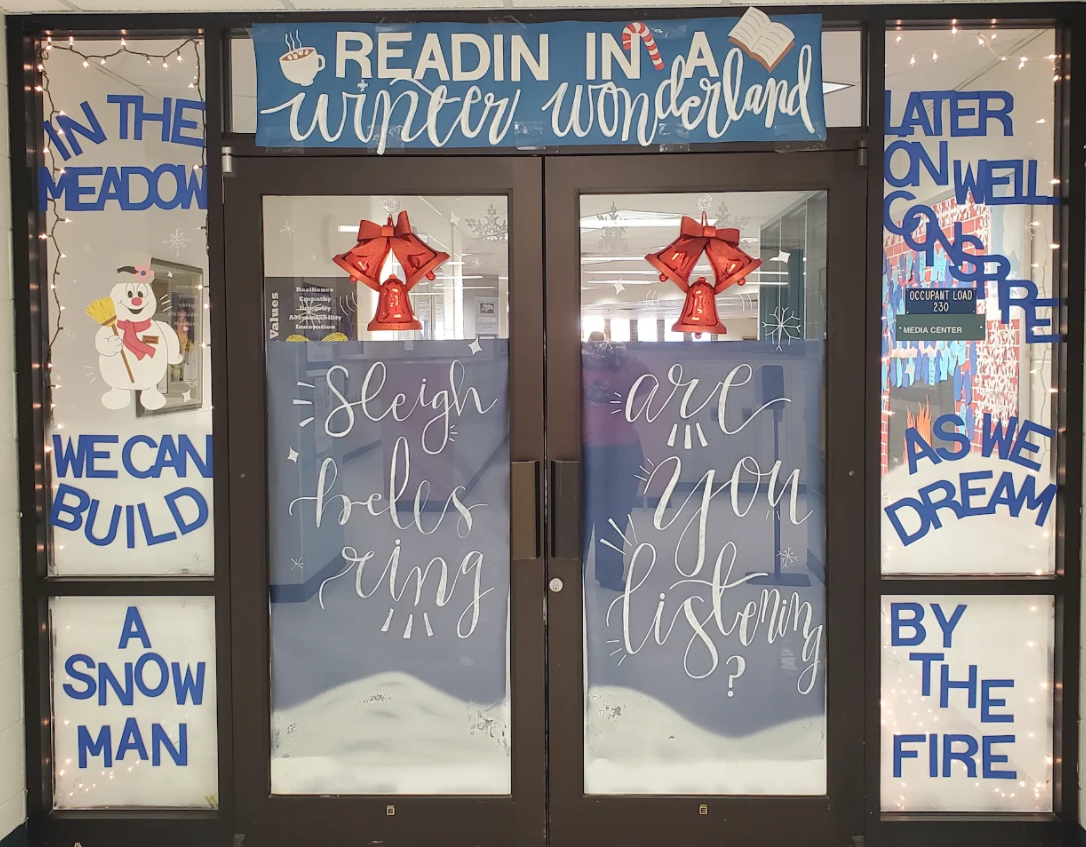 READIN IN A
winter wonderland
IN THE
MEADOW
WE CAN
BUILD
A
SNOW
MAN
Values
Resilience
Empathy
Integrity
Adaptability
Innovation
Sleigh
belles
ring
are
you
listening
?
LATER
ON WELL
CONSPIRE
OCCUPANT LOAD
230
MEDIA CENTER
AS WE
DREAM
BY
THE
FIRE